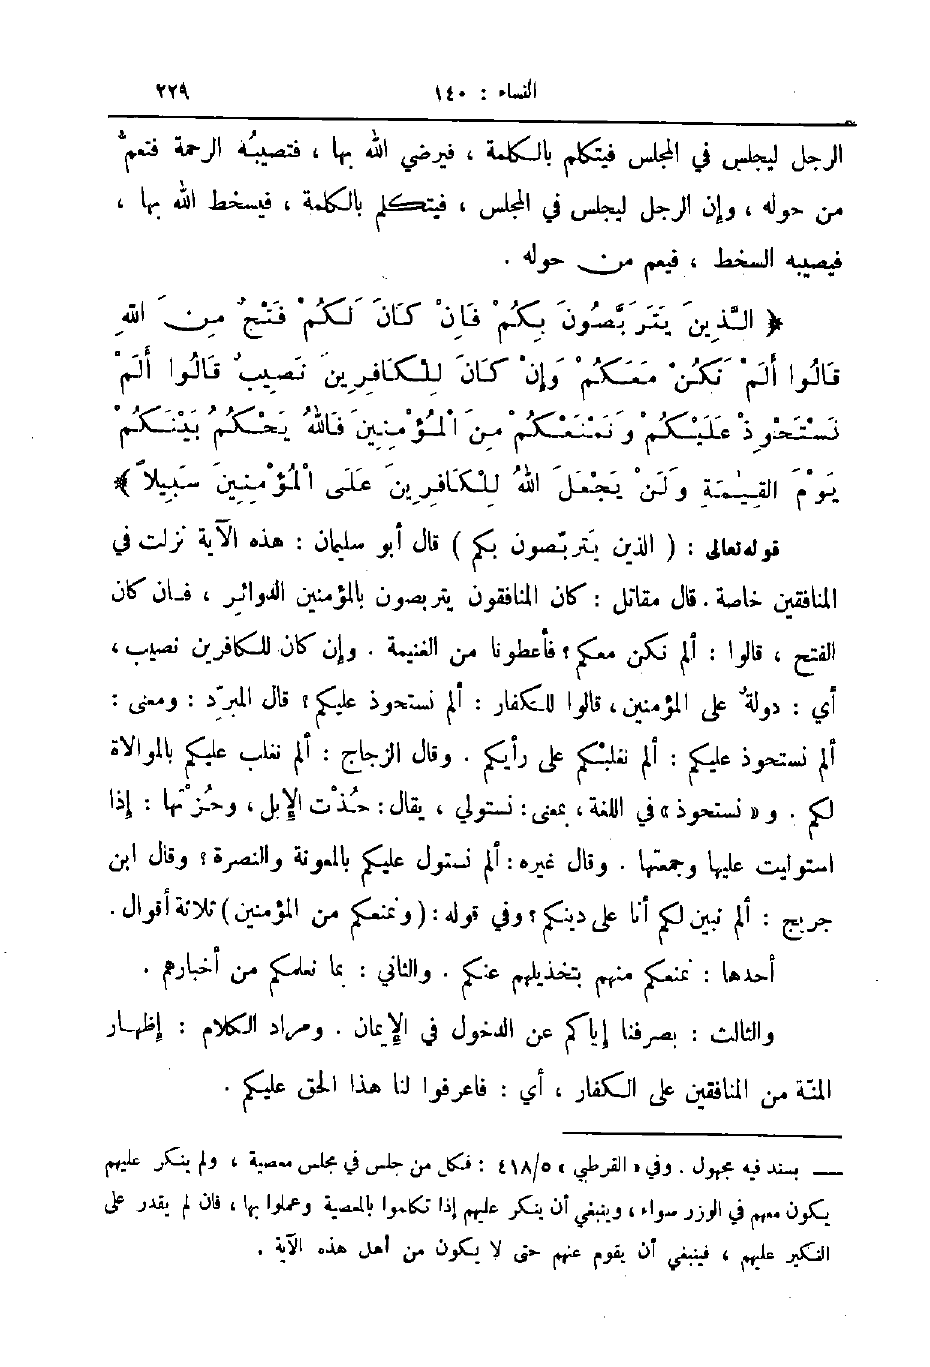 النساء : ١٤٠ ٢٢٩
الرجل ليجلس في المجلس فيتكلم بالكلمة ، فيرضي الله بها ، فتصيبُه الرحمة فتعمُّ
من حوله ، وإن الرجل ليجلس في المجلس ، فيتكلم بالكلمة ، فيسخط الله بها ،
فيصيبه السخط ، فيعم من حوله .
﴿ الَّذِينَ يَتَرَبَّصُونَ بِكُمْ فَإِنْ كَانَ لَكُمْ فَتْحٌ مِنَ اللهِ
قَالُوا أَلَمْ نَكُنْ مَعَكُمْ وَإِنْ كَانَ لِلْكَافِرِينَ نَصِيبٌ قَالُوا أَلَمْ
نَسْتَحْوِذْ عَلَيْكُمْ وَنَمْنَعْكُمْ مِنَ الْمُؤْمِنِينَ فَاللهُ يَحْكُمُ بَيْنَكُمْ
يَوْمَ القِيٰمَةِ وَلَنْ يَجْعَلَ اللهُ لِلْكَافِرِينَ عَلَى الْمُؤْمِنِينَ سَبِيلاً ﴾
قوله تعالى : ( الذين يَتربّصون بكم ) قال أبو سليمان : هذه الآية نزلت في
المنافقين خاصة . قال مقاتل : كان المنافقون يتربصون بالمؤمنين الدوائر ، فان كان
الفتح ، قالوا : ألم نكن معكم ؟ فأعطونا من الغنيمة . وإن كان للكافرين نصيب ،
أي : دولةٌ على المؤمنين ، قالوا للكفار : ألم نستحوذ عليكم ؟ قال المبرّد : ومعنى :
ألم نستحوذ عليكم : ألم نغلبْكم على رأيكم . وقال الزجاج : ألم نغلب عليكم بالموالاة
لكم . و « نستحوذ » في اللغة ، بمعنى : نستولي ، يقال : حُذْت الإبل ، وحُزْتها : إذا
استوليت عليها وجمعتها . وقال غيره : ألم نستول عليكم بالمعونة والنصرة ؟ وقال ابن
جريج : ألم نبين لكم أنا على دينكم ؟ وفي قوله : ( ونمنعكم من المؤمنين ) ثلاثة أقوال .
أحدها : نمنعكم منهم بتخذيلهم عنكم . والثاني : بما نعلمكم من أخبارهم .
والثالث : بصرفنا إياكم عن الدخول في الإيمان . ومراد الكلام : إظهار
المنّة من المنافقين على الكفار ، أي : فاعرفوا لنا هذا الحق عليكم .
— بسند فيه مجهول . وفي « القرطبي » ٤١٨/٥ : فكل من جلس في مجلس معصية ، ولم ينكر عليهم
يكون معهم في الوزر سواء ، وينبغي أن ينكر عليهم إذا تكلموا بالمعصية وعملوا بها ، فان لم يقدر على
النكير عليهم ، فينبغي أن يقوم عنهم حتى لا يكون من أهل هذه الآية .